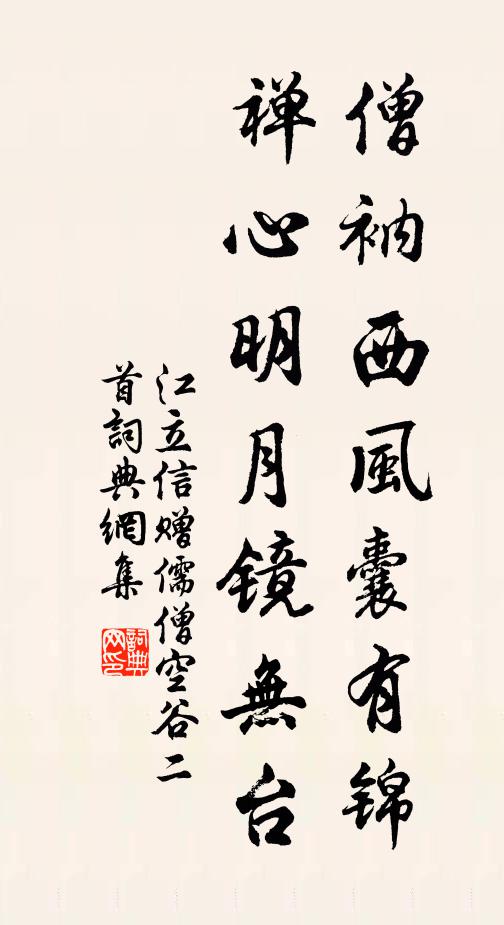 僧衲西風囊有锦
禅心明月镜無台
江立信赠儒僧空谷二
首詞典網集
詞典
网印